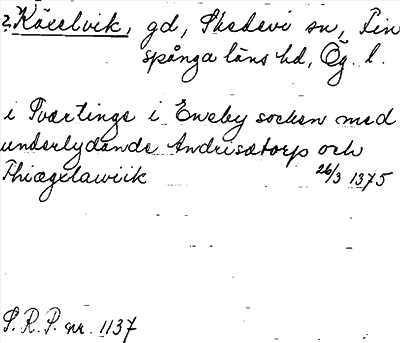 2. Kärelvik, gd, Skedevi sn, Fin
spånga läns hd, Ög. l.
i Tværtinge i Eneby socken med
underlydande Andrisætorp och
Thiægelawiik 26/3 1375
S. R. P. nr. 1137